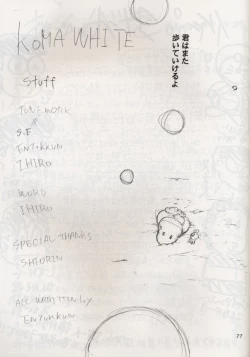 KOMA WHITE
君はまた
歩いていけるよ
stuff
S.E
ENYUKKUN
IHIRO
WORD
IHIRO
SPECIAL THANKS
SHIORIN
ALL WRITTEN by
ENYUKKUN
77